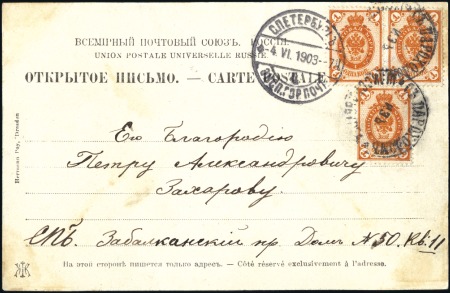 ВСЕМІРНЫЙ ПОЧТОВЫЙ СОЮЗЪ. РОССІЯ.
UNION POSTALE UNIVERSELLE RUSSIE.
ОТКРЫТОЕ ПИСЬМО. — CARTE POSTALE
С.ПЕТЕРБУРГ
4. VI. 1903
Его Благородію
Петру Александровичу
Захарову.
СПБ. Забалканскій пр. Домъ № 50. Кв. 11
На этой сторонѣ пишется только адресъ. — Côté réservé exclusivement à l'adresse.